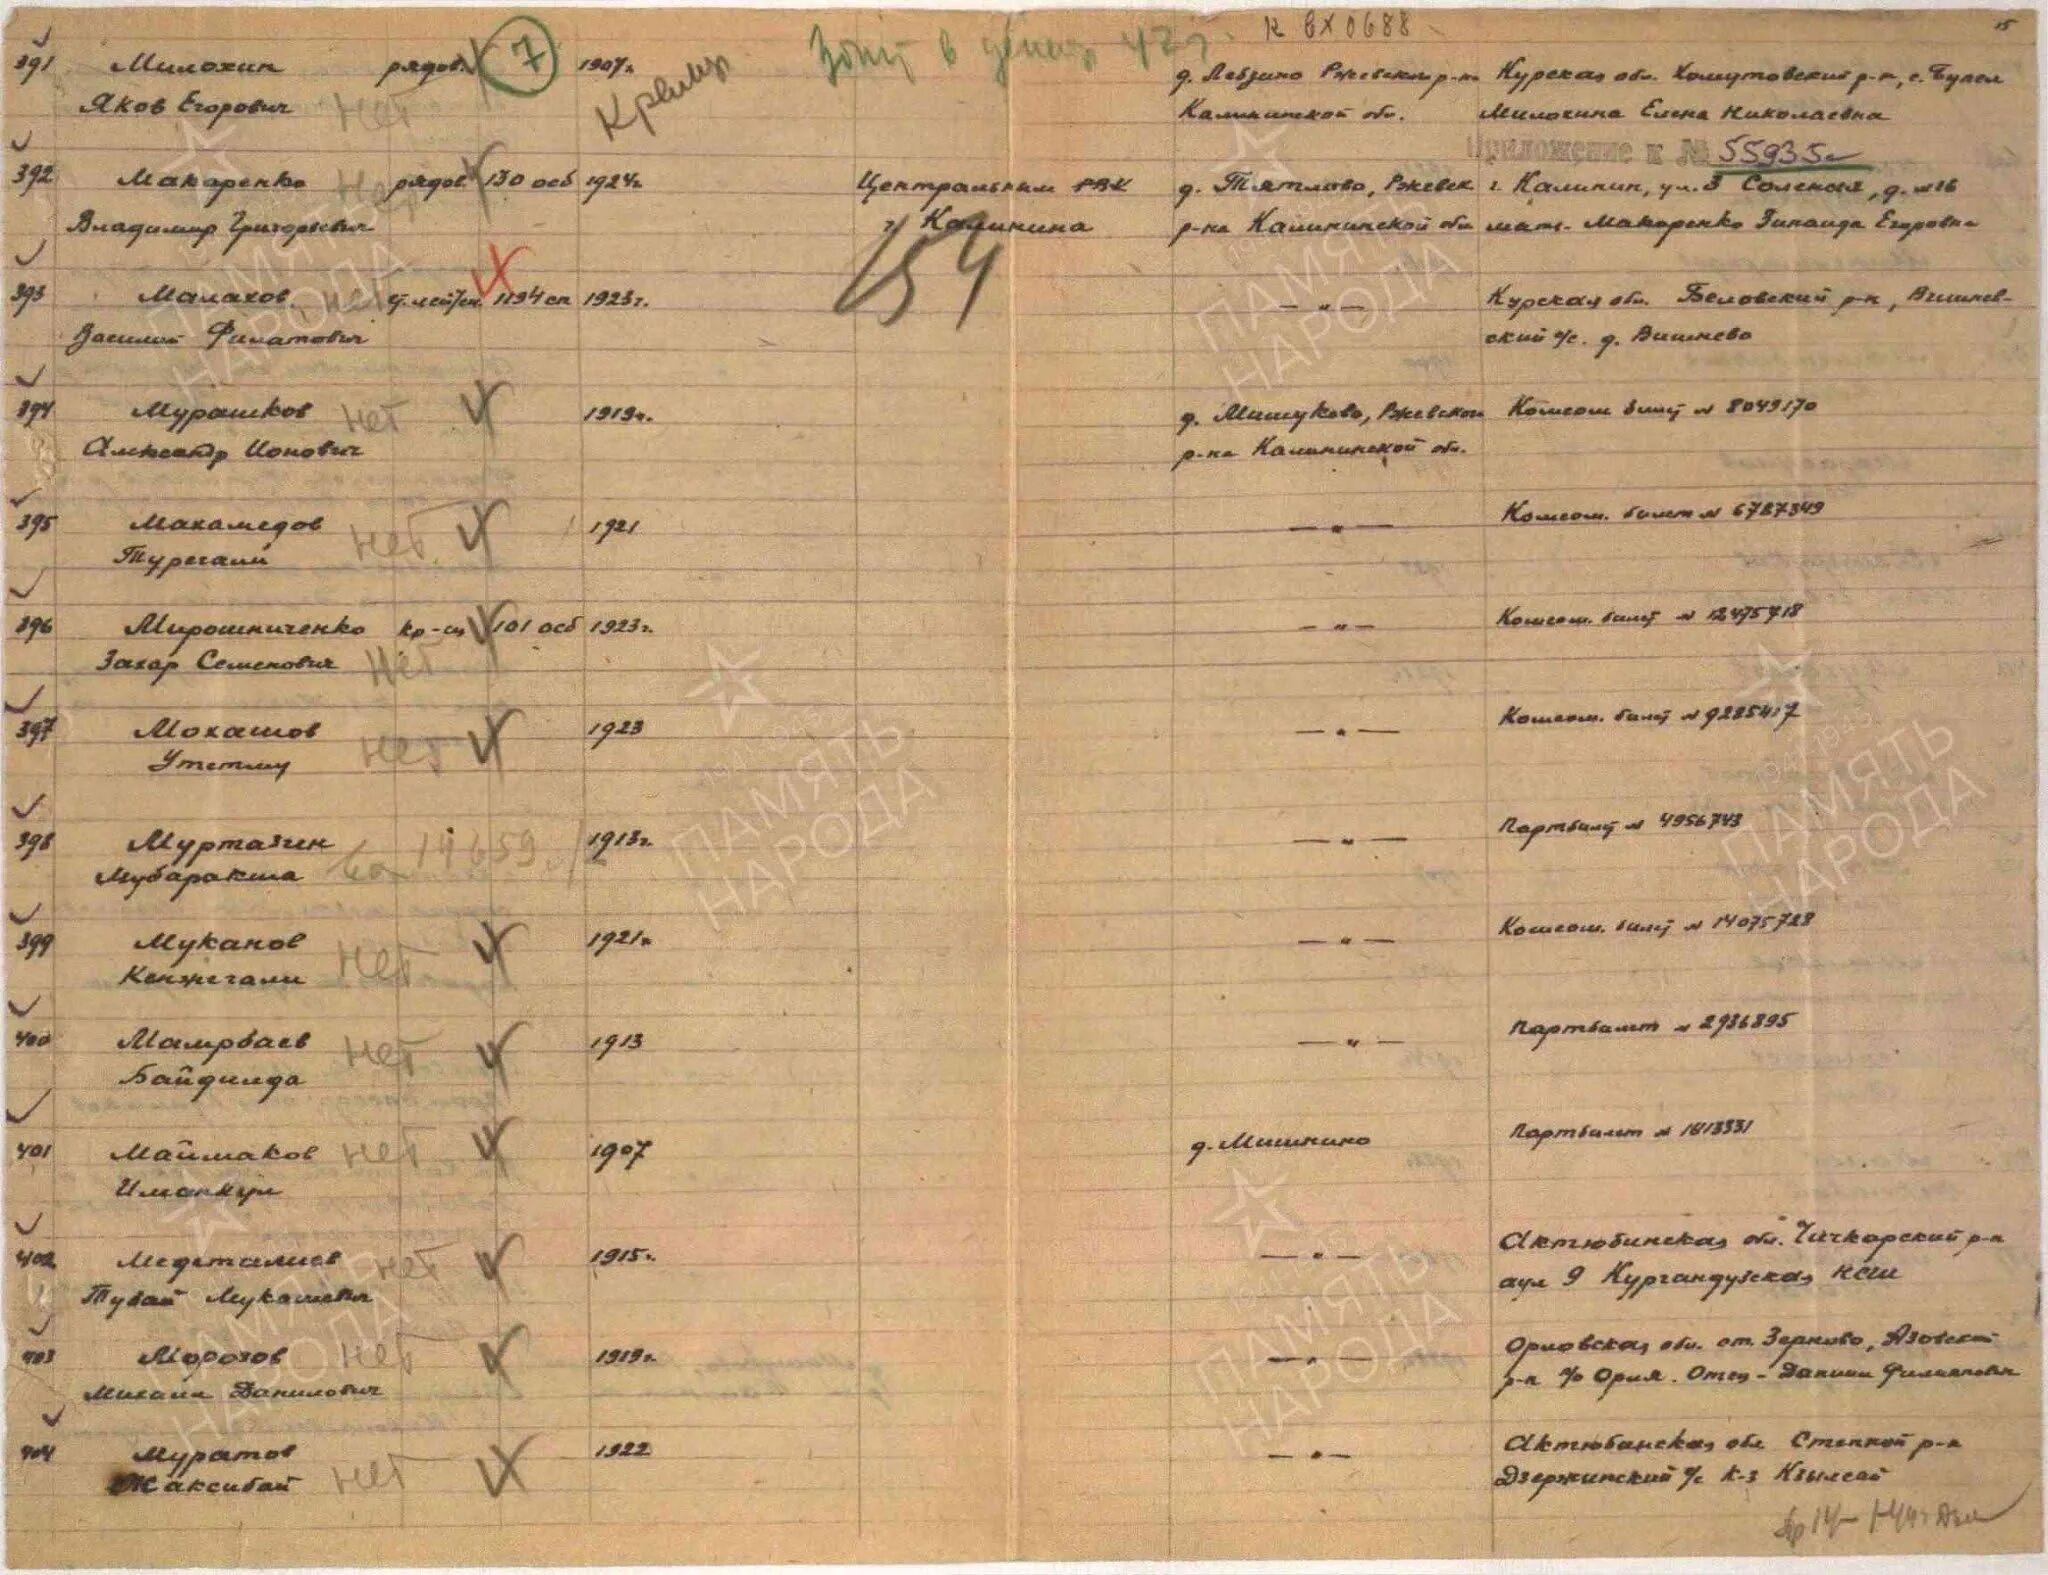 к вх 0688
15
391 Милохин рядов. 7 1907г. д. Лебзино Ржевский р-на Курская обл. Хомутовский р-н, с.
Яков Егорович нет Калининской обл. Милохина Елена Николаевна
Приложение к № 55935с
392 Макаренко нет рядов. 130 осб 1924г. Центральным РВК д. Тятлово, Ржевск г. Калинин, ул. 3 Соленая, д. №16
Владимир Григорьевич г. Калинина р-на Калининской обл мать- Макаренко Зинаида Егоровна
154
393 Малахов нет ст. лейтен. 1194 сп 1923г. —"— Курская обл. Беловский р-н, Вишнев-
Василий Филатович ский с/с. д. Вишнево
394 Мурашков нет 1919г. д. Мишуково, Ржевског Комсом. билет № 8049170
Александр Ионович р-на Калининской обл.
395 Махамедов нет 1921 —"— Комсом. билет № 6787349
Турегали
396 Мирошниченко кр-ец 101 осб 1923г. —"— Комсом. билет № 12475718
Захар Семенович нет
397 Мохашов нет 1923 —"— Комсом. билет № 9285417
398 Муртазин 1913г. —"— Партбилет № 4956743
Мубаракша
399 Муканов нет 1921г. —"— Комсом. билет № 14075728
Кенжегали
400 Маирбаев нет 1913 —"— Партбилет № 2936895
Байдилда
401 Маймаков нет 1907 д. Мишкино Партбилет № 1613331
Иманкул
402 Медеталиев нет 1915г. —"— Актюбинская обл. Чичкарский р-н
Тубай Мукашевич аул 9 Кургандузская НСШ
403 Морозов нет 1919г. —"— Орловская обл. ст. Зерново, Азовский
Михаил Данилович р-н Отец-Данил Филиппович
404 Муратов 1922 —"— Актюбинская обл Степной р-н
Жаксибай нет Дзержинский с/с к-з Кзылсай
ПАМЯТЬ
НАРОДА